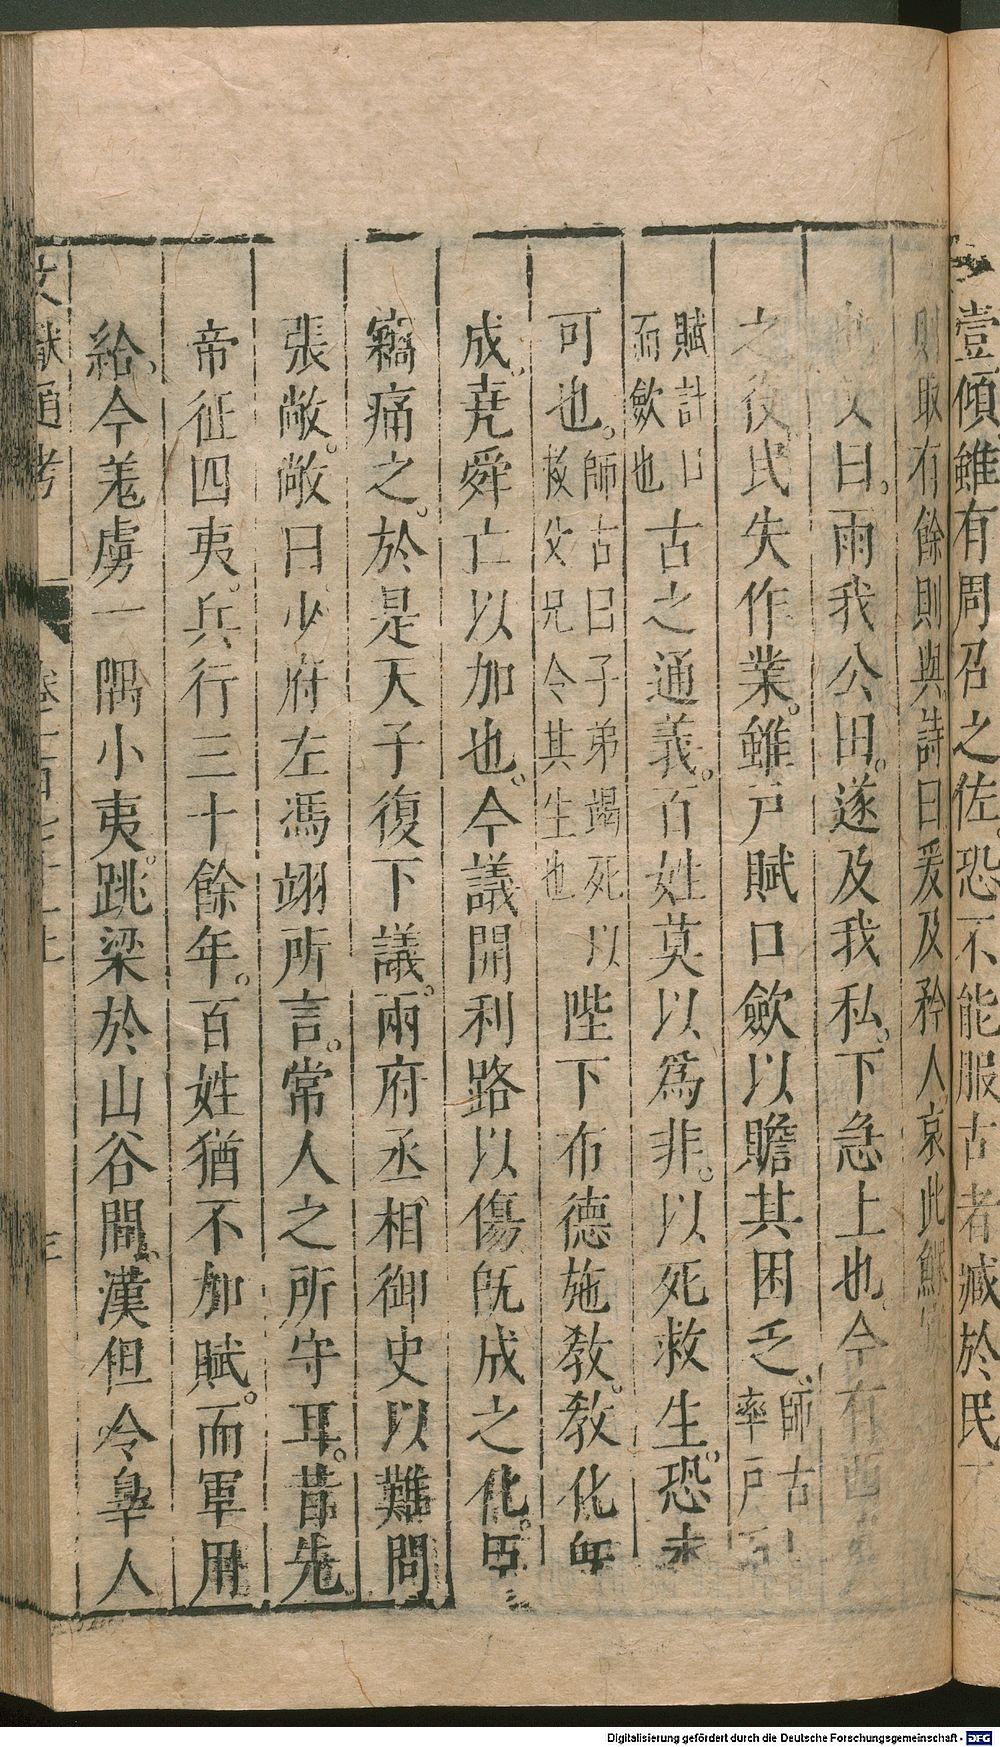 壹傾雖有周召之佐。恐不能服古者臧於民
則取有餘則與詩曰爰及矜人哀此鰥
又曰。雨我公田。遂及我私。下急上也。今有西
之役。民失作業。雖戶賦口歛以贍其困乏。師古
率戶
賦計口
而歛也
古之通義。百姓莫以爲非。以死救生。恐未
可也。師古曰子弟竭死以
救父兄令其生也
陛下布德施敎。敎化旣
成。堯舜亡以加也。今議開利路以傷旣成之化。臣
竊痛之。於是天子復下議。兩府丞相、御史以難問
張敞。敞曰。少府左馮翊所言。常人之所守耳。昔先
帝征四夷。兵行三十餘年。百姓猶不加賦。而軍用
給。今羗虜一隅小夷。跳梁於山谷間。漢但令辠人
文獻通考
三
Digitalisierung gefördert durch die Deutsche Forschungsgemeinschaft - DFG